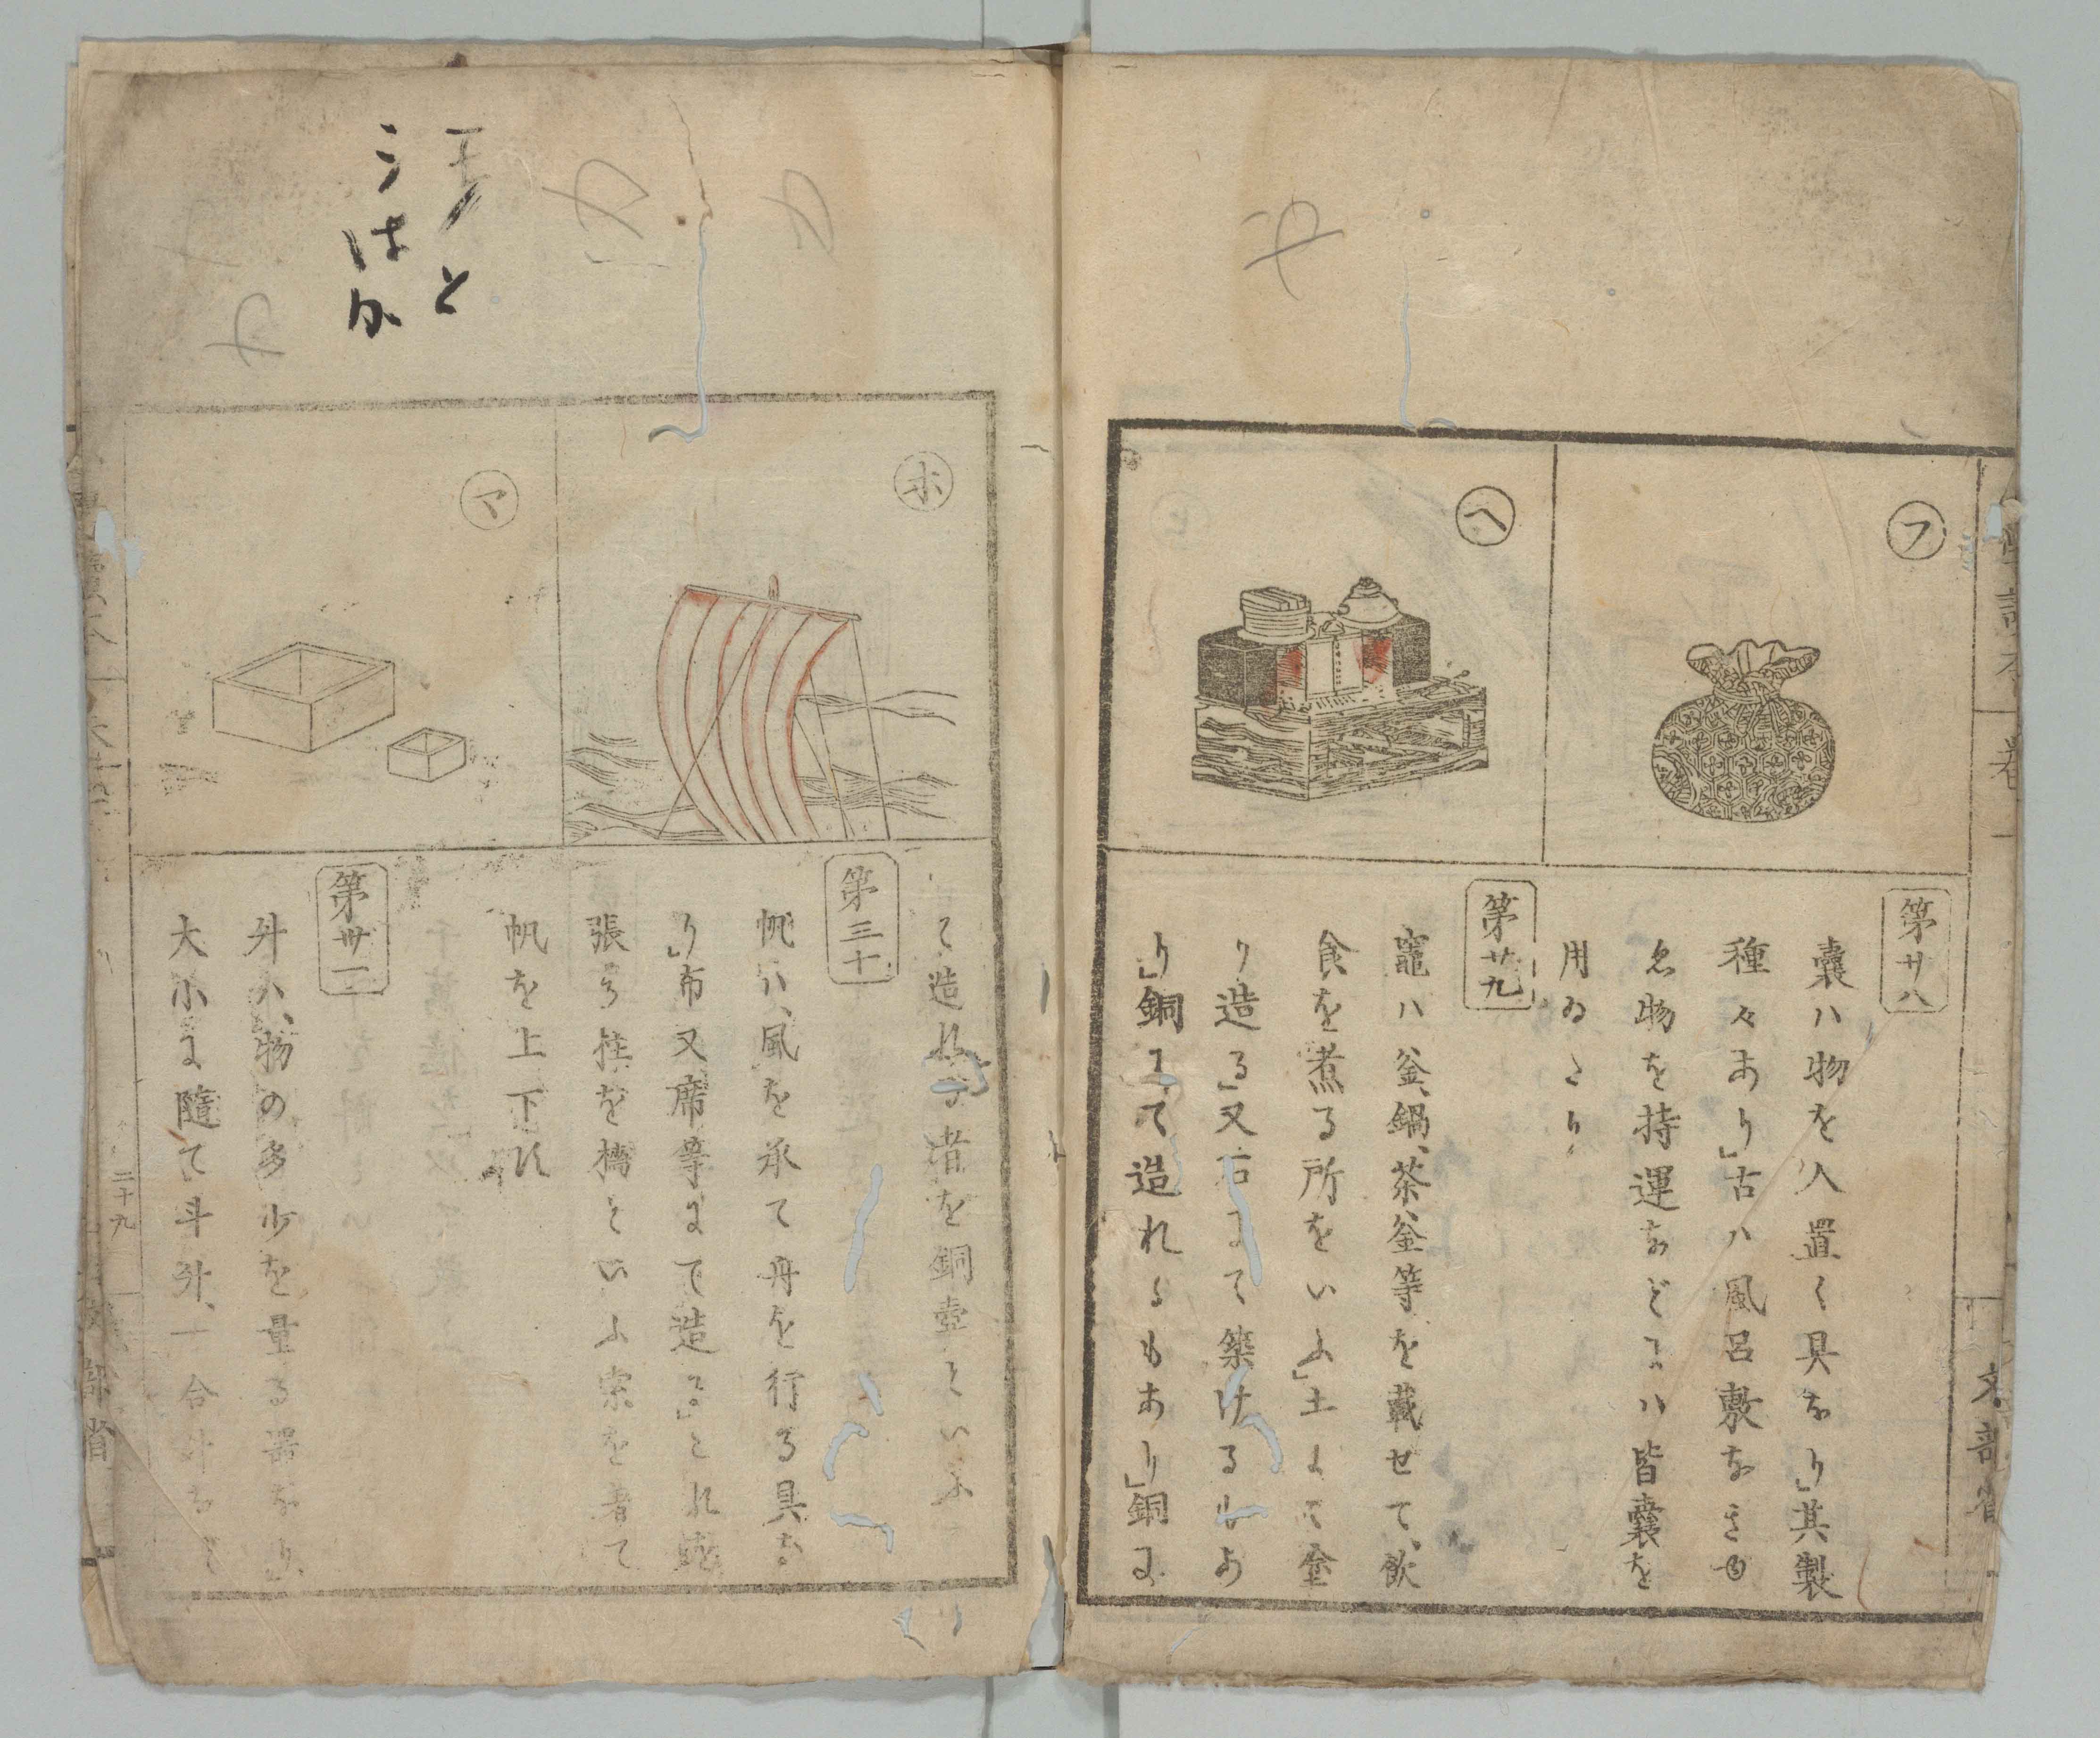 フ
第廿八
嚢ハ物を入置く具なり」其製
種々あり」古ハ風呂敷なきゆ
ゑ物を持運などにハ皆嚢を
用ゐたり
ヘ
第廿九
竈ハ釜、鍋、茶釜等を載せて、飲
食を煮る所をいふ」土にて塗
り造る」又石にて築けるもあ
り」銅にて造れるもあり」銅に
文部省
ホ
て造れる者を銅壺といふ
第三十
帆ハ、風を承て舟を行る具な
り」布又席等にて造る」これを
張る柱を檣といふ索を著て
帆を上下す
マ
第卅一
升ハ、物の多少を量る器なり」
大小に随て斗升、一合升
二十九
部省
とはか